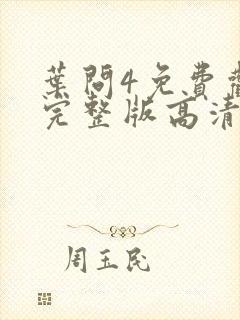 葉問4免費觀
完整版高清
周玉民